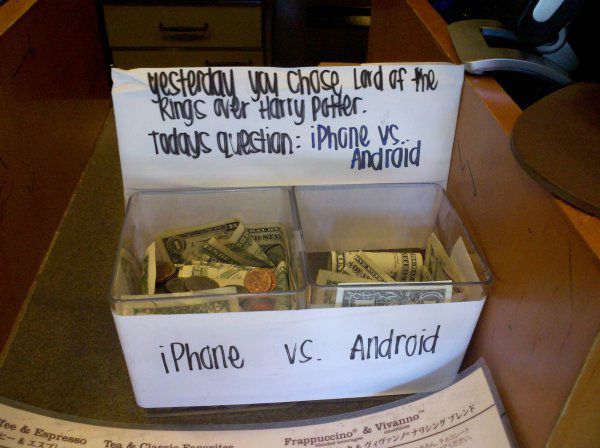 yesterday you chose Lord of the
Rings over Harry Potter.
Todays question: iPhone vs.
Android
iPhone vs. Android
Frappuccino® & Vivanno™
blended beverages
ffee & Espresso
Tea & Classic Favorites